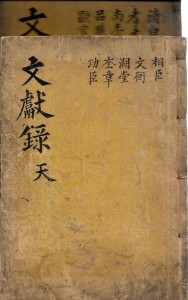 清白
文
相臣
文衡
湖堂
奎章
功臣
文獻錄 天